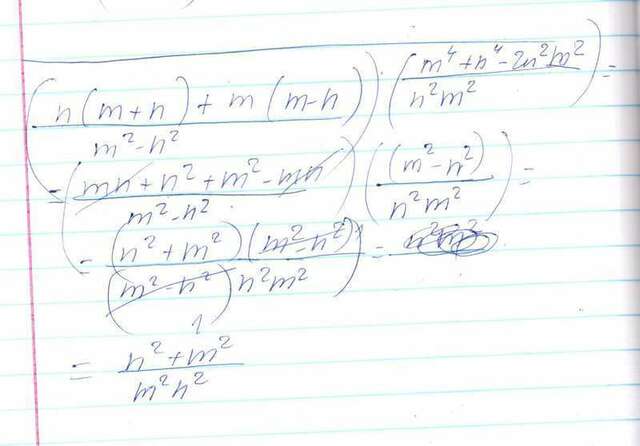 (n(m+n)+m(m-n) / m²-n²) · (m⁴+n⁴-2n²m² / n²m²) =
= (mn+n²+m²-mn / m²-n²) ((m²-n²) / n²m²) =
= ((n²+m²)(m²-n²)¹ / (m²-n²) n²m²) =
1
= n²+m² / m²n²